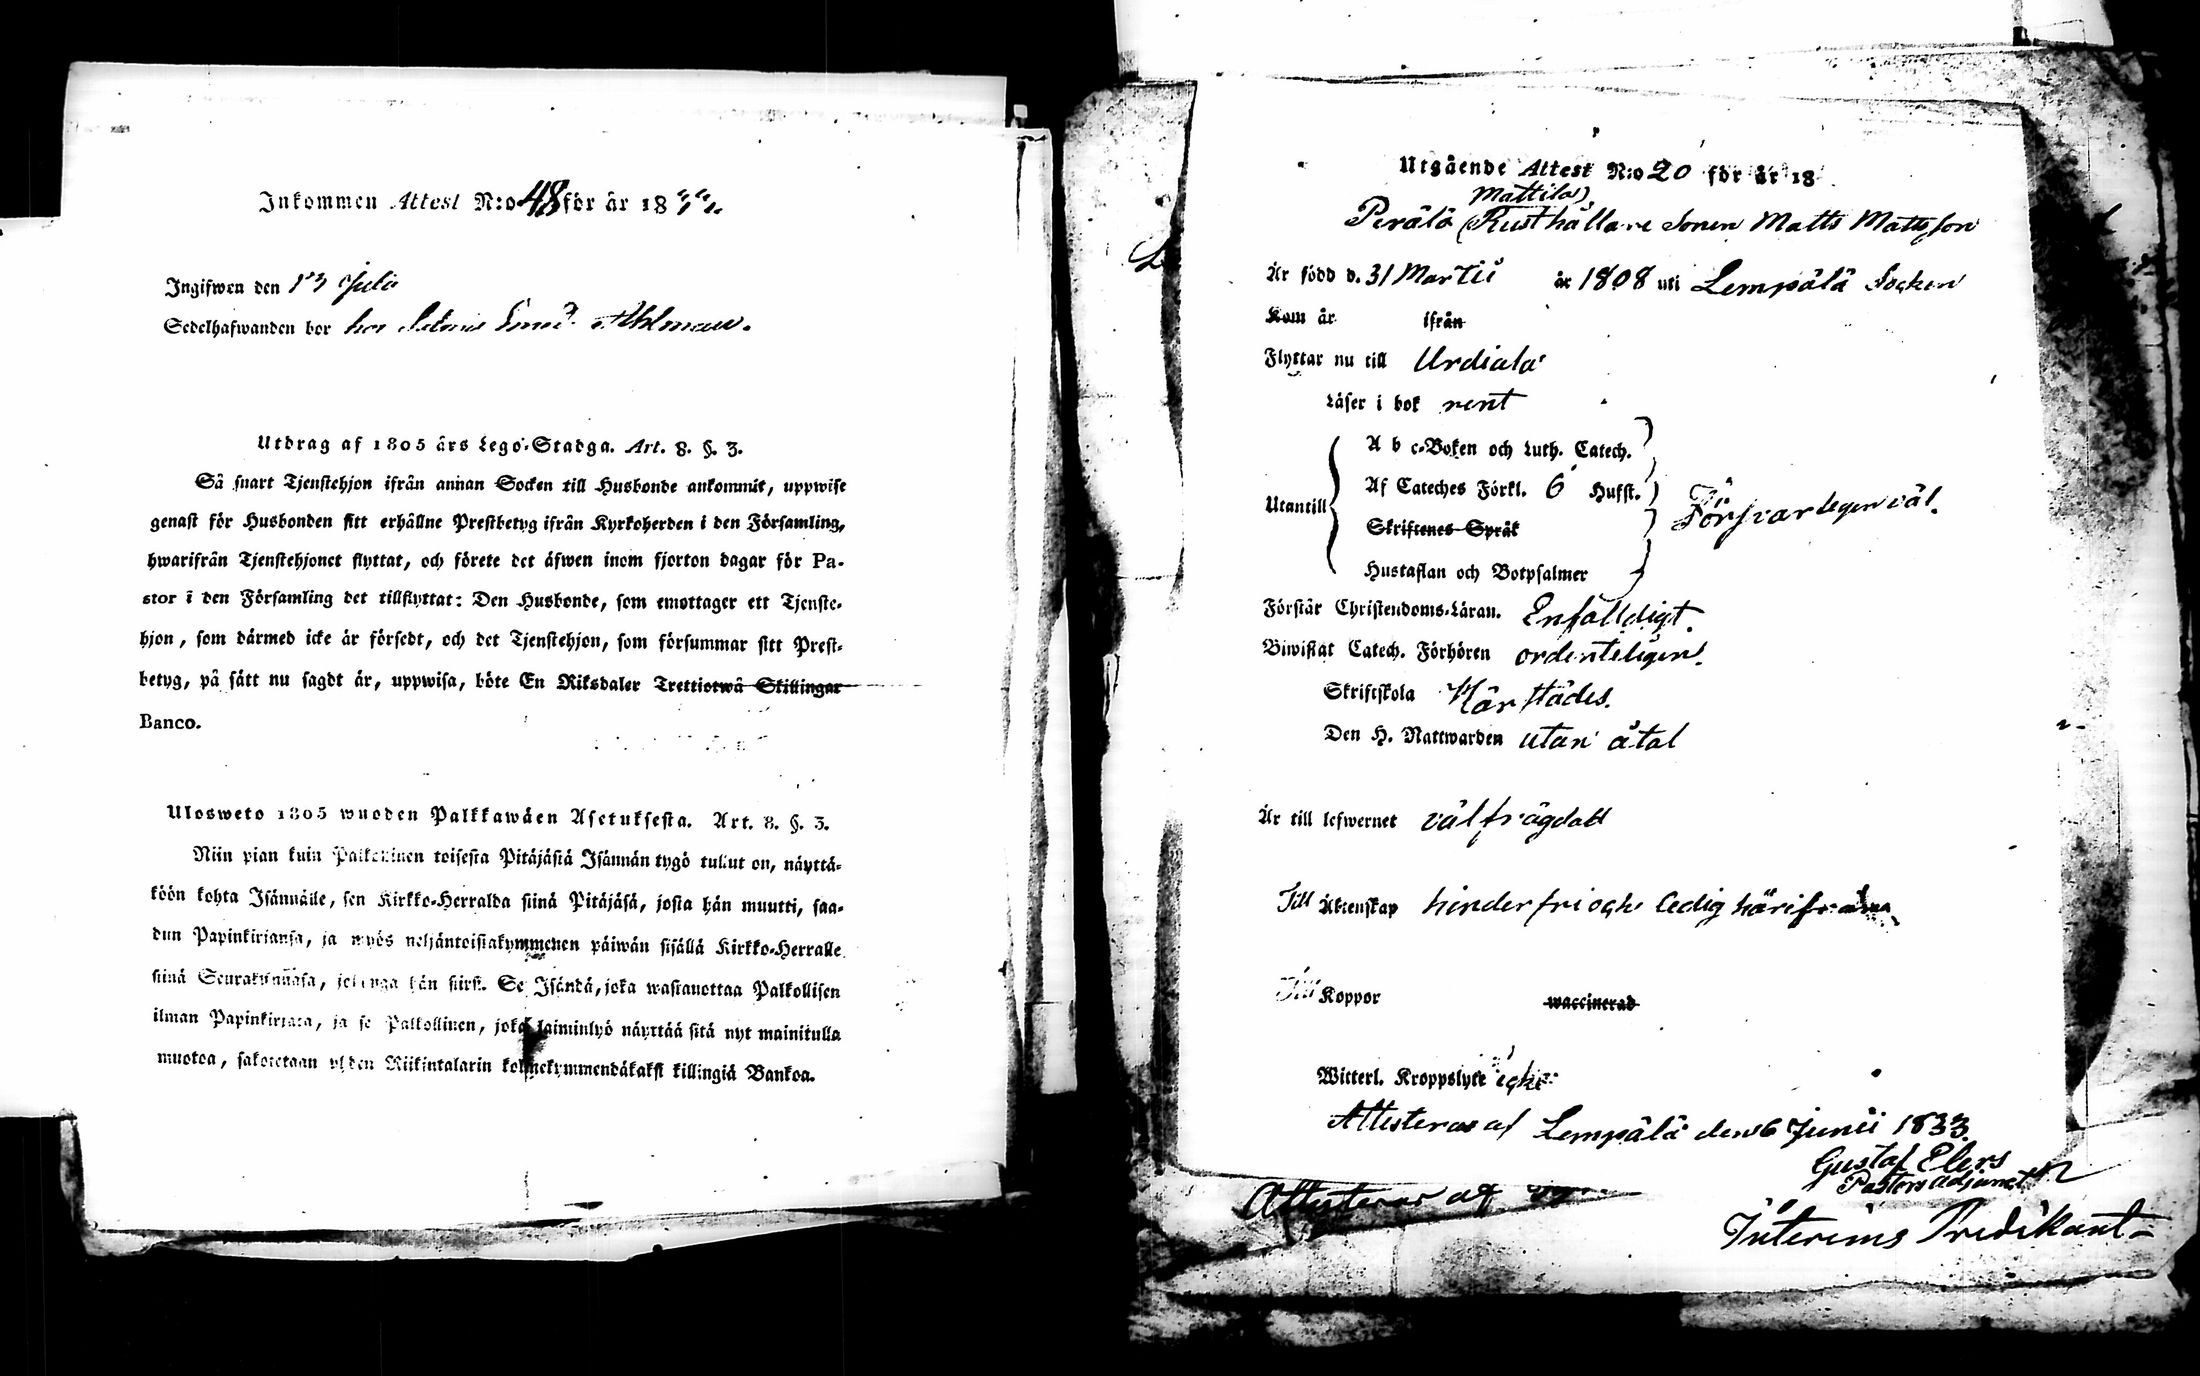 Inkommen Attest N:o 48 för år 18
Ingifwen den 13 Julii
Sedelhafwanden bor hos Ahlman.
Utdrag af 1805 års Lego-Stadga. Art. 8. §. 3.
Så snart Tjenstehjon ifrån annan Socken till Husbonde ankommit, uppwise
genast för Husbonden sitt erhållne Prestbetyg ifrån Kyrkoherden i den Församling,
hwarifrån Tjenstehjonet flyttat, och förete det äfwen inom fjorton dagar för Pa-
stor i den Församling det tillflyttat: Den Husbonde, som emottager ett Tjenste-
hjon, som därmed icke är försedt, och det Tjenstehjon, som försummar sitt Prest-
betyg, på sätt nu sagdt är, uppwisa, böte En Riksdaler Trettiotwå Skillingar
Banco.
Ulosweto 1805 wuoden Palkkawäen Asetuksesta. Art. 8. §. 3.
Niin pian kuin Palkollinen toisesta Pitäjästä Isännän tygö tullut on, näyttä-
köön kohta Isännälle, sen Kirkko-Herralda siinä Pitäjäsä, josta hän muutti, saa-
dun Papinkirjansa, ja myös neljäntoistakymmenen päiwän sisällä Kirkko-Herralle
siinä Seurakunnasa, johonga hän siirsi. Se Isändä, joka wastanottaa Palkollisen
ilman Papinkirjata, ja se Palkollinen, joka laiminlyö näyttää sitä nyt mainitulla
muotoa, sakotetaan yhden Riikintalarin kolmekymmendäkaksi killingiä Bankoa.
Utgående Attest N:o 20 för år 18
Mattila)
Perälä (Rusthållare Sonen Matts Mattsson
Är född d. 31 Martii år 1808 uti Lempälä Socken
Kom år ifrån
Flyttar nu till Urdiala
Läser i bok rent
Utantill
A b c-Boken och Luth. Catech.
Af Cateches Förkl. 6 Hufst.
Skriftenes Språk
Hustaflan och Botpsalmer
Försvarligen väl.
Förstår Christendoms-Läran. Enfaldigt.
Biwistat Catech. Förhören ordenteligen.
Skriftskola Härstädes.
Den H. Nattwarden utan åtal
Är till lefwernet välfrägdad
Till Äktenskap hinderfri och ledig härifrån
Till Koppor waccinerad
Witterl. Kroppslyte icke
Attesteras af Lempälä den 6 Junii 1833.
Gustaf Elers
Pastors Adjunct
Attesteras af
Interims Predikant